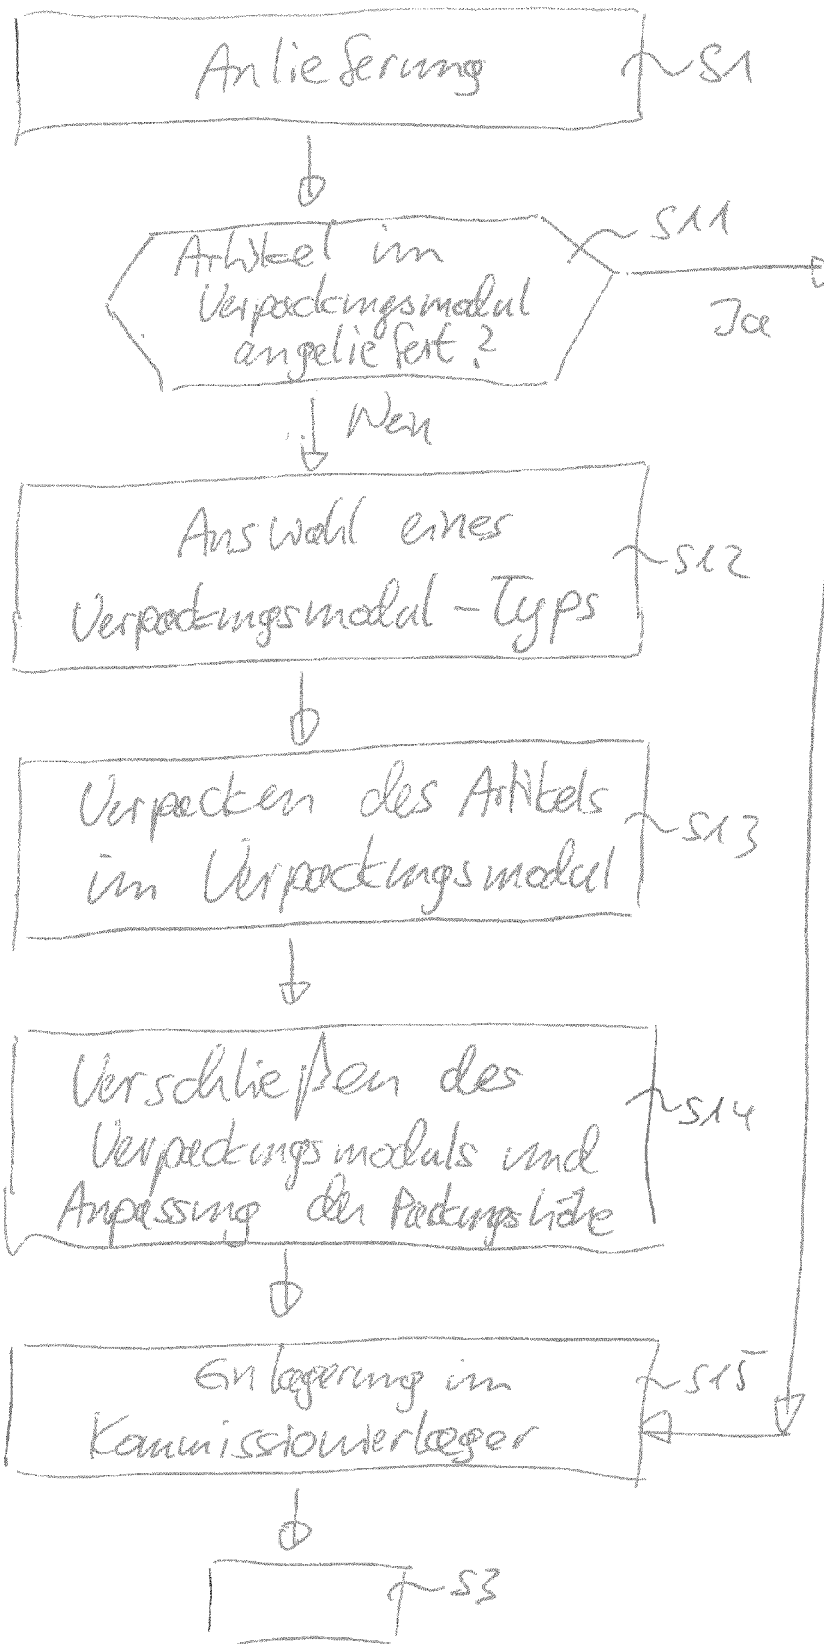 Anlieferung
S1
Artikel im
Verpackungsmodul
angeliefert?
S11
Ja
Nein
Auswahl eines
Verpackungsmodul-Typs
S12
Verpacken des Artikels
im Verpackungsmodul
S13
Verschließen des
Verpackungsmoduls und
Anpassung der Packungshöhe
S14
Einlagerung im
Kommissionierlager
S15
S3